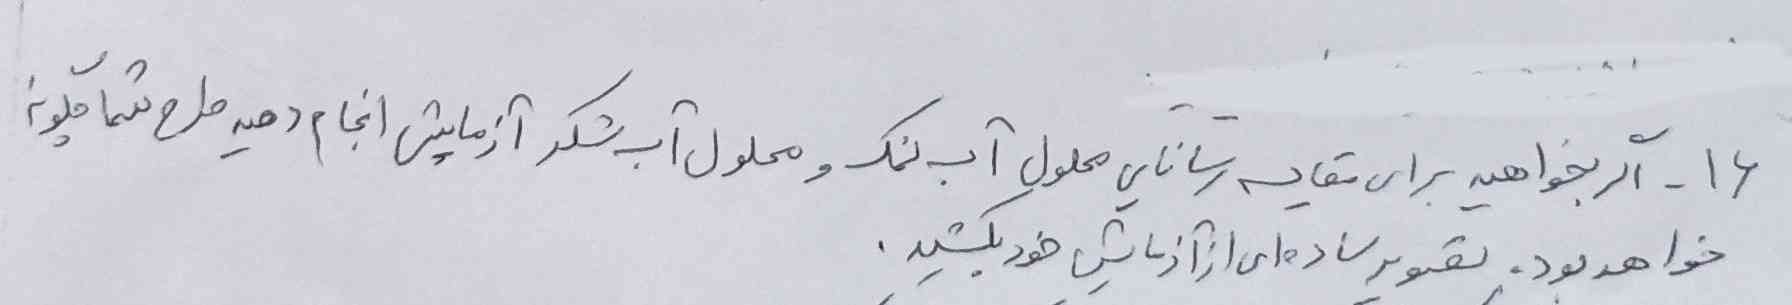 ۱۶- اگر بخواهید برای مقایسه رسانایی محلول آب نمک و محلول آب شکر آزمایش انجام دهید طرح شما چگونه
خواهد بود. تصویر ساده‌ای از آزمایش خود بکشید.